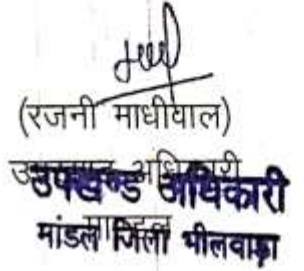 (रजनी माधीवाल)
उपखण्ड अधिकारी
उपखण्ड अधिकारी
माण्डल
मांडल जिला भीलवाड़ा